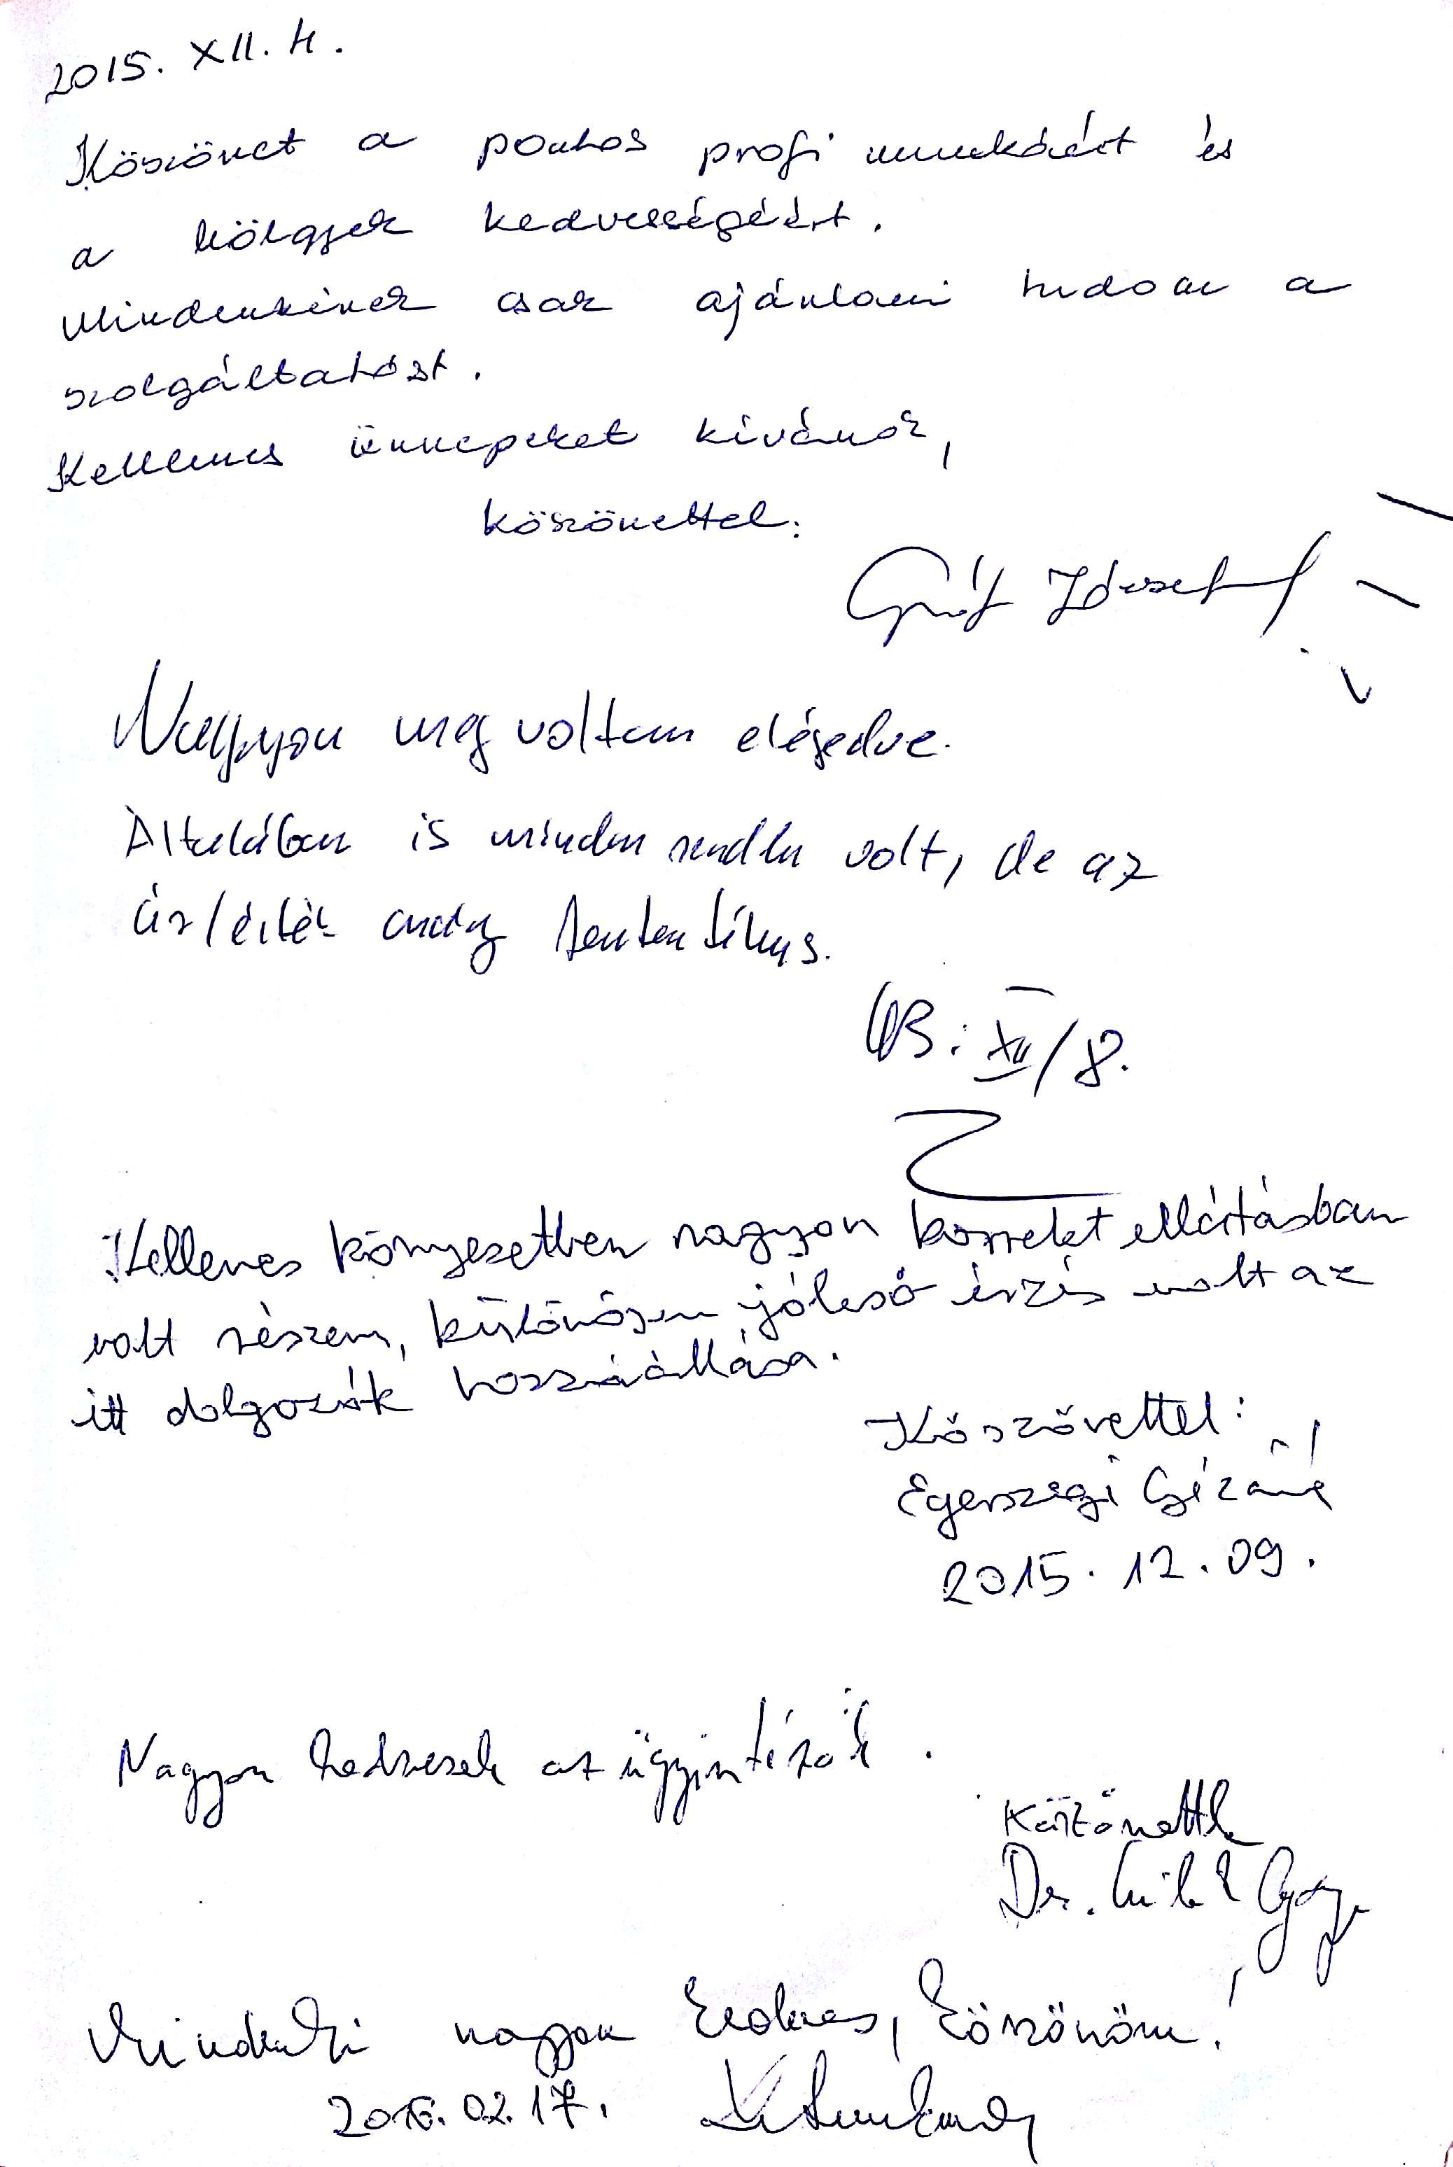 2015. XII. 4.
Köszönet a pontos profi munkáért és
a hölgyek kedvességéért.
Mindenkinek csak ajánlani tudom a
szolgáltatást.
Kellemes ünnepeket kívánok,
köszönettel:
Gráf József
Nagyon meg voltam elégedve.
Általában is minden rendben volt, de az
ár/érték arány fantasztikus.
XII/8.
Kellemes környezetben nagyon korrekt ellátásban
volt részem, különösen jóleső érzés volt az
itt dolgozók hozzáállása.
Köszönettel:
Egerszegi Gézáné
2015. 12. 09.
Nagyon kedvesek az ügyintézők.
Köszönettel
Dr.
Mindenki nagyon kedves, köszönöm!
2016. 02. 17.